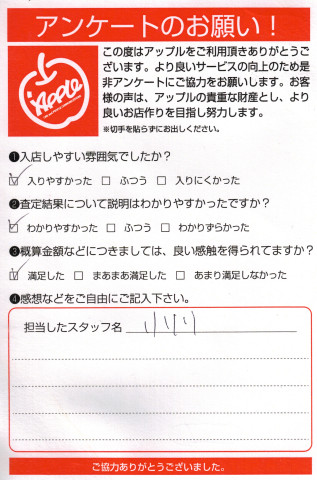 アンケートのお願い！
Apple
この度はアップルをご利用頂きありがとうご
ざいます。より良いサービスの向上のため是
非アンケートにご協力をお願いします。お客
様の声は、アップルの貴重な財産とし、より
良いお店作りを目指し努力します。
※切手を貼らずにお出しください。
❶入店しやすい雰囲気でしたか？
☑ 入りやすかった □ ふつう □ 入りにくかった
❷査定結果について説明はわかりやすかったですか？
☑ わかりやすかった □ ふつう □ わかりずらかった
❸概算金額などにつきましては、良い感触を得られてますか？
☑ 満足した □ まあまあ満足した □ あまり満足しなかった
❹感想などをご自由にご記入下さい。
担当したスタッフ名
ご協力ありがとうございました。